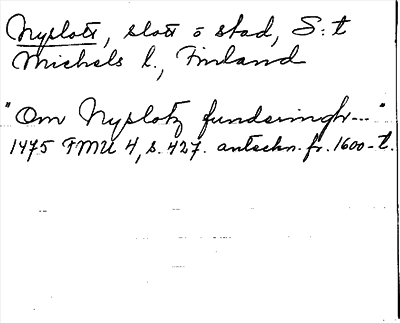 Nyslott, slott o stad, S:t
Michels l., Finland
"Om Nyslotz funderingh---"
1475 FMU 4, s. 427. anteckn. fr. 1600-t.